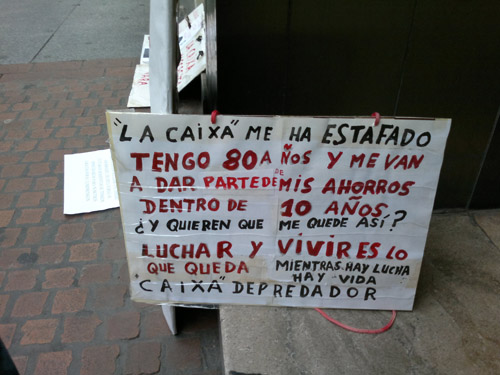 "LA CAIXA" ME HA ESTAFADO
TENGO 80 AÑOS Y ME VAN
A DAR PARTE DE DE MIS AHORROS
DENTRO DE 10 AÑOS
¿Y QUIEREN QUE ME QUEDE ASÍ?
LUCHAR Y VIVIR ES LO
QUE QUEDA MIENTRAS HAY LUCHA
HAY VIDA
"CAIXA" DEPREDADOR